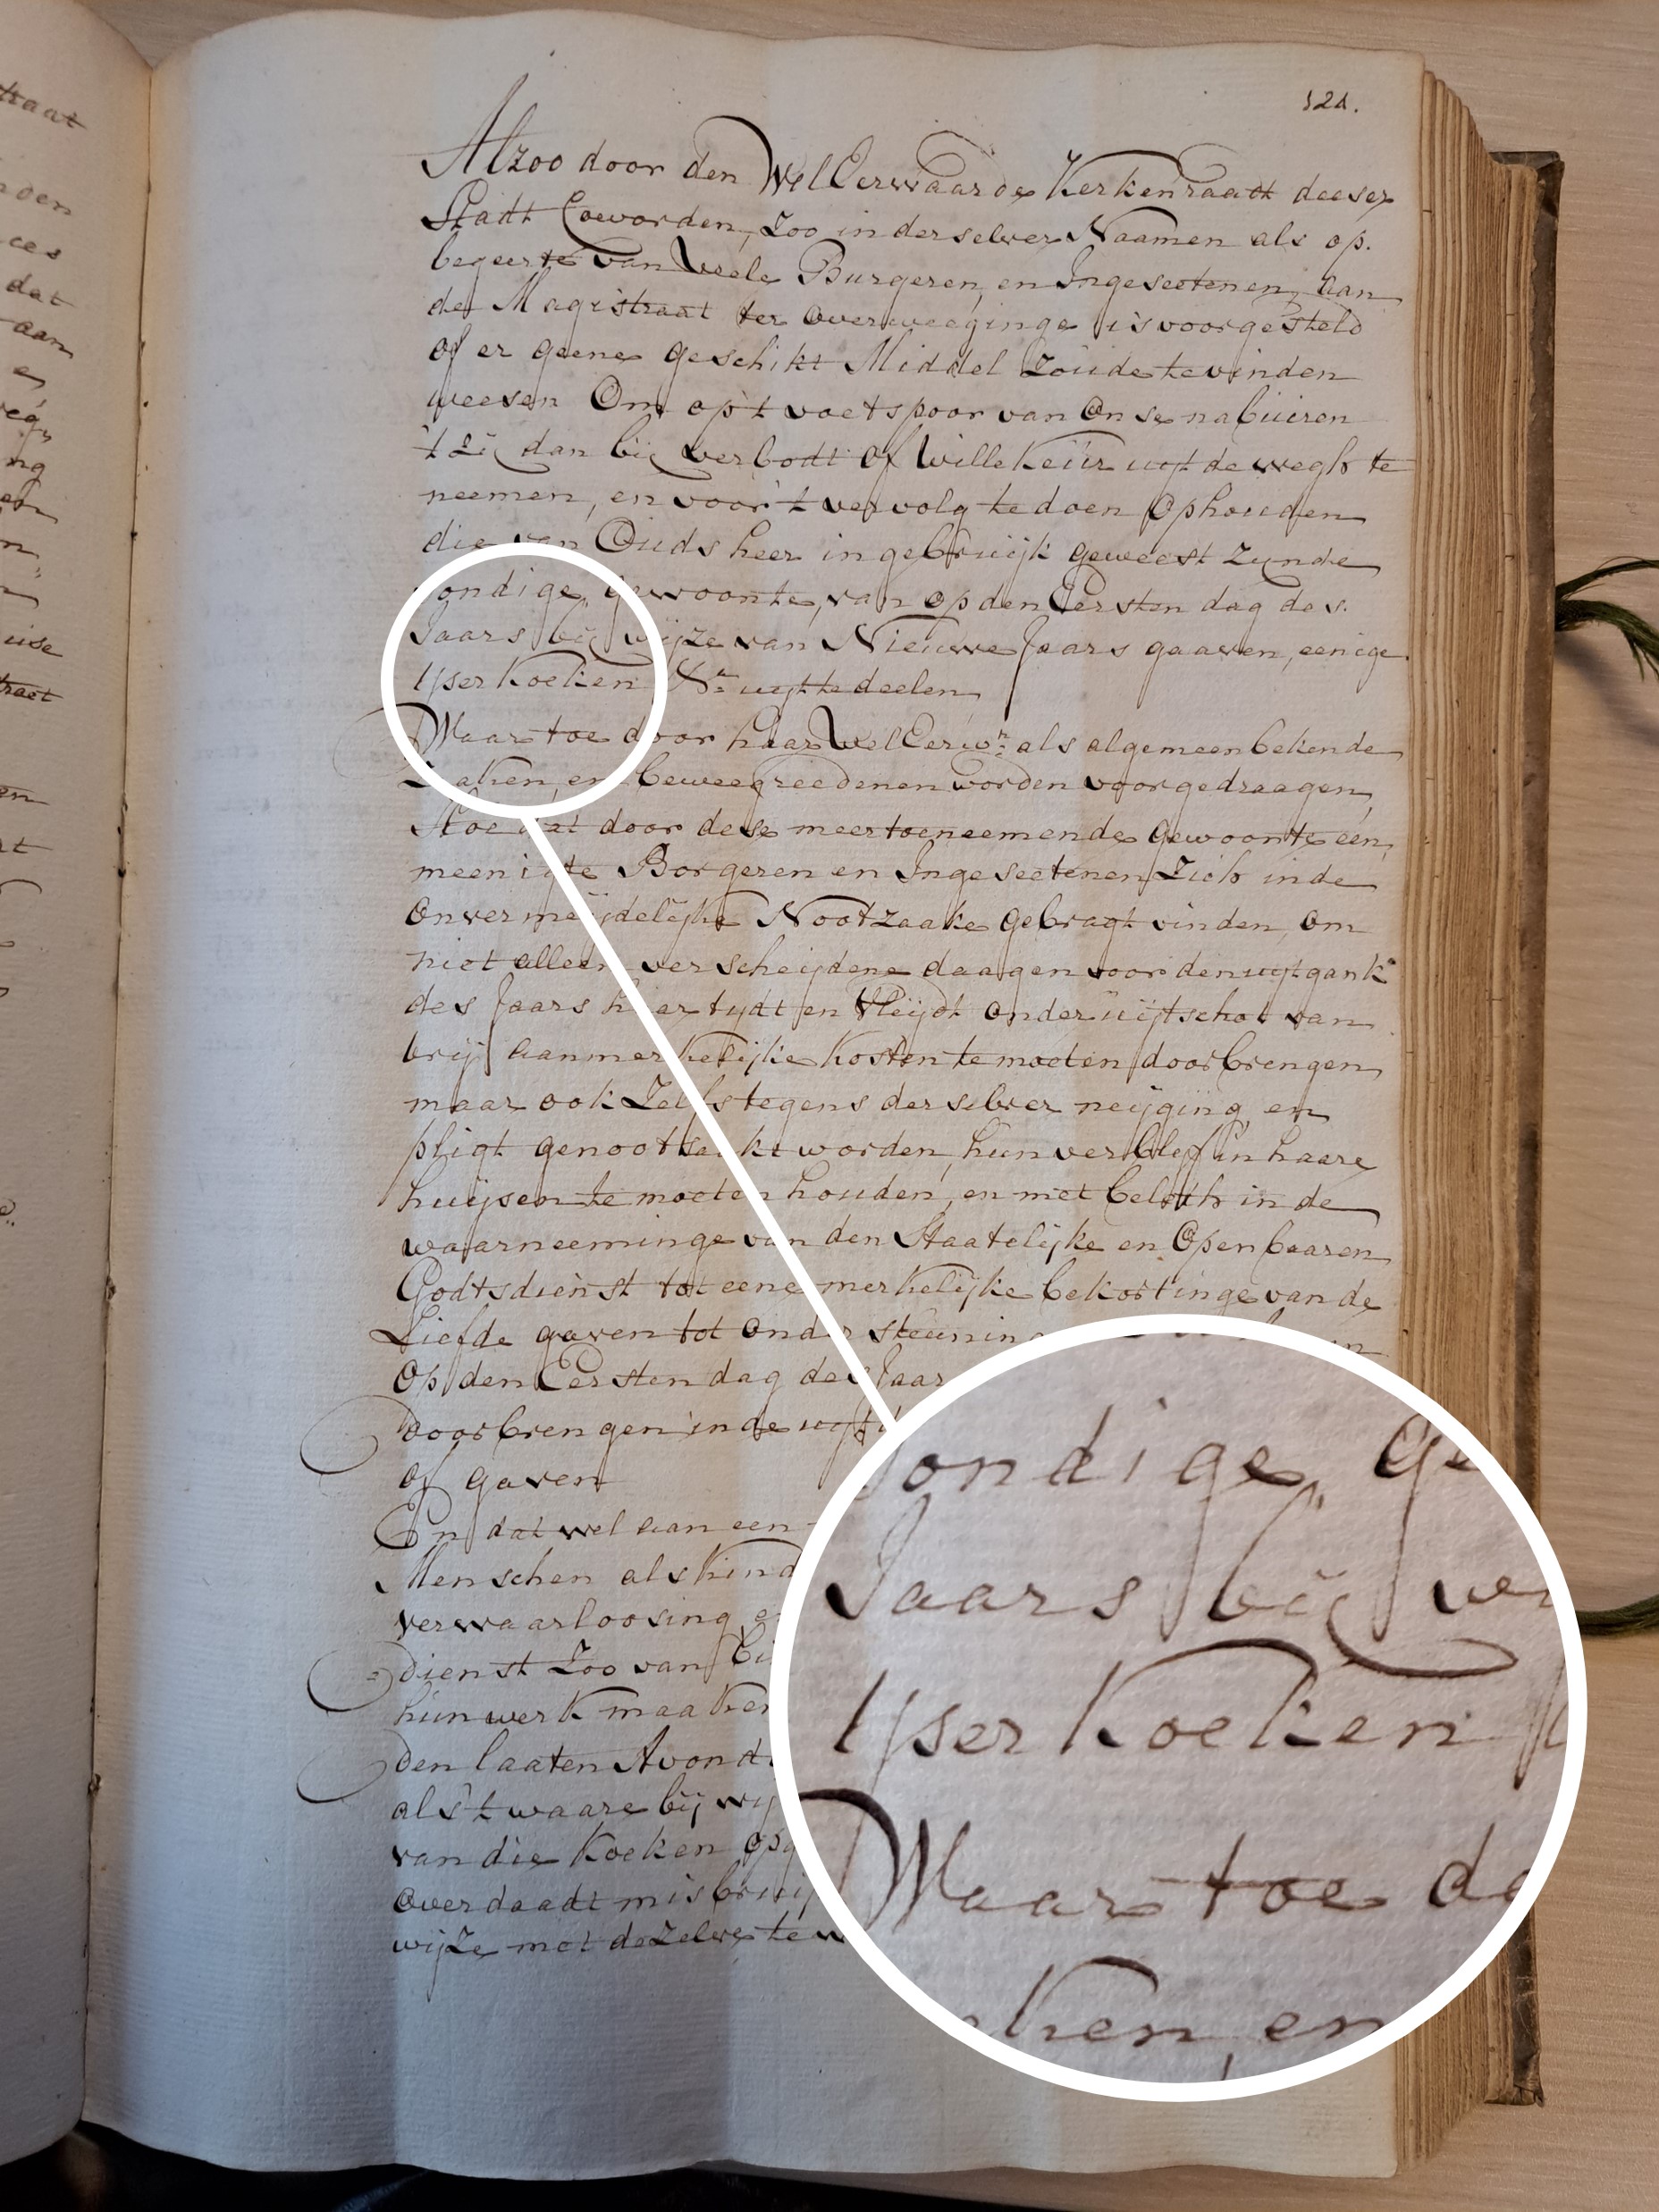 121.
Alzoo door den Wel Eerwaarde Kerkenraadt deeser
Stadt Coevorden, Zoo in derselver Naamen als op
begeerte van Veele Burgeren, en Ingeseetenen, aan
de Magistraat ter overweeginge is voorgesteld
of er geene geschikt Middel Zoude te vinden
weesen Om op't voetspoor van Onse nabuiren
't Zij dan bij verbodt of Willekeur uyt de wegh te
neemen, en voor't vervolg te doen Ophouden
die van Ouds heer in gebruijk geweest Zynde
zondige gewoonte, van op den Eersten dag des
Jaars bij wijze van Nieuwe Jaars gaaven, eenige
IJserkoeken uyt te deelen,
Waar toe door haar Wel Eerwn: als algemeen bekende
Zaken, en beweegreedenen worden voorgedraagen,
Hoe dat door dese meer toeneemende gewoonte een
meenigte Borgeren en Ingeseetenen Zich in de
Onvermeijdelijke Nootzaake gebragt vinden, om
niet alleen verscheijdene daagen voor den uytgank
des Jaars hier tydt en Vleijdt onder uijtschot van
vrij aanmerkelijke Kosten te moeten doorbrengen
maar ook Zelfs tegens derselver neijging en
pligt genootsaakt worden, hun verblijf in haare
huijsen te moeten houden, en met belet in de
waarneeminge van den Staatelijke en Openbaaren
Godtsdienst tot eene merkelijke bekortinge van de
Liefde gaven tot onder steuning
Op den Eersten dag des Jaar
Doorbrengen in de uyt
of gaven
En dat wel aan een
Menschen als kind
verwaarloosing
dienst Zoo van
hun werk maaken
den laaten Avond
als't waare bij wy
van die Koeken opg
Overdaadt misbruij
wijze met dezelve te
ondige, ge
Jaars bij
IJserkoeken
Waar toe do
aken, en